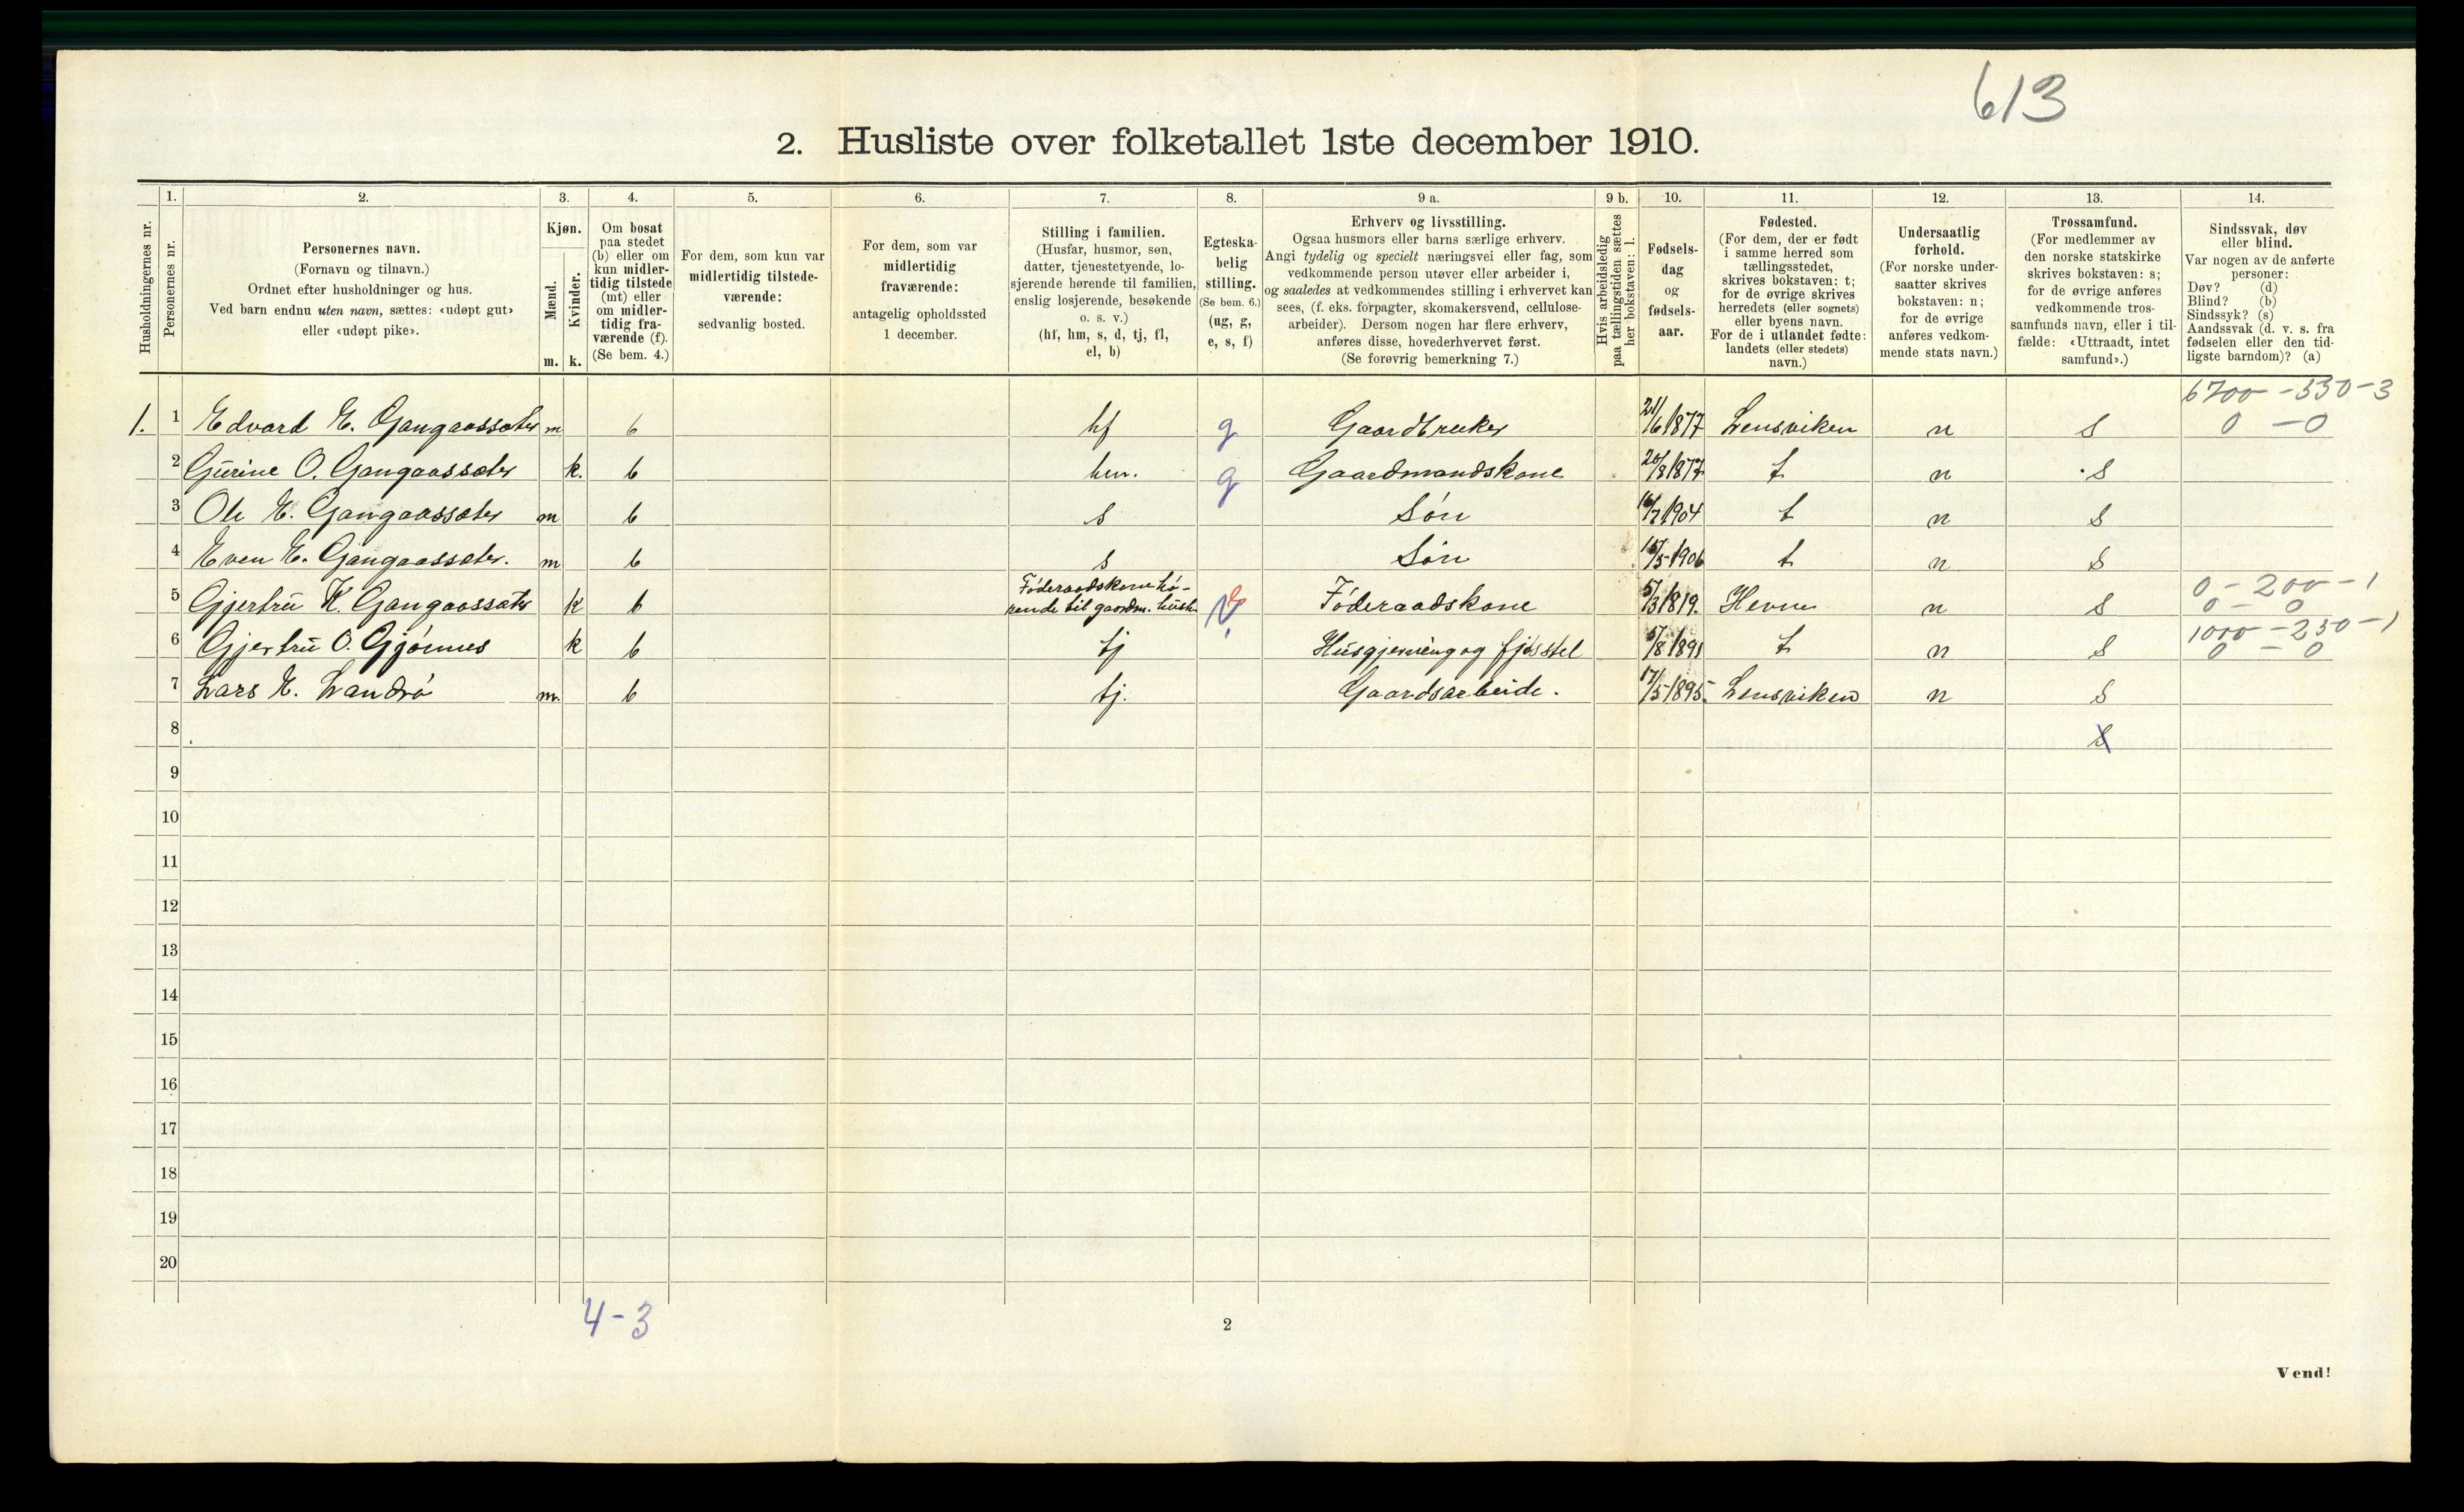 613
2. Husliste over folketallet 1ste december 1910.
Husholdningernes nr.
1.
Personernes nr.
2.
Personernes navn.
(Fornavn og tilnavn.)
Ordnet efter husholdninger og hus.
Ved barn endnu uten navn, sættes: «udøpt gut»
eller «udøpt pike».
3.
Kjøn.
Mænd.
m.
Kvinder.
k.
4.
Om bosat
paa stedet
(b) eller om
kun midler-
tidig tilstede
(mt) eller
om midler-
tidig fra-
værende (f).
(Se bem. 4.)
5.
For dem, som kun var
midlertidig tilstede-
værende:
sedvanlig bosted.
6.
For dem, som var
midlertidig
fraværende:
antagelig opholdssted
1 december.
7.
Stilling i familien.
(Husfar, husmor, søn,
datter, tjenestetyende, lo-
sjerende hørende til familien,
enslig losjerende, besøkende
o. s. v.)
(hf, hm, s, d, tj, fl,
el, b)
8.
Egteska-
belig
stilling.
(Se bem. 6.)
(ug, g,
e, s, f)
9 a.
Erhverv og livsstilling.
Ogsaa husmors eller barns særlige erhverv.
Angi tydelig og specielt næringsvei eller fag, som
vedkommende person utøver eller arbeider i,
og saaledes at vedkommendes stilling i erhvervet kan
sees, (f. eks. forpagter, skomakersvend, cellulose-
arbeider). Dersom nogen har flere erhverv,
anføres disse, hovederhvervet først.
(Se forøvrig bemerkning 7.)
9 b.
Hvis arbeidsledig
paa tællingstiden sættes
her bokstaven: l.
10.
Fødsels-
dag
og
fødsels-
aar.
11.
Fødested.
(For dem, der er født
i samme herred som
tællingsstedet,
skrives bokstaven: t;
for de øvrige skrives
herredets (eller sognets)
eller byens navn.
For de i utlandet fødte:
landets (eller stedets)
navn.)
12.
Undersaatlig
forhold.
(For norske under-
saatter skrives
bokstaven: n;
for de øvrige
anføres vedkom-
mende stats navn.)
13.
Trossamfund.
(For medlemmer av
den norske statskirke
skrives bokstaven: s;
for de øvrige anføres
vedkommende tros-
samfunds navn, eller i til-
fælde: «Uttraadt, intet
samfund».)
14.
Sindssvak, døv
eller blind.
Var nogen av de anførte
personer:
Døv? (d)
Blind? (b)
Sindssyk? (s)
Aandssvak (d. v. s. fra
fødselen eller den tid-
ligste barndom)? (a)
6700 - 550 - 3
1. 1 Edvard E. Gangaassæter m b hf g Gaardbruker 21/6 1877 Lensviken n s 0 - 0
2 Gurine O. Gangaassæter k. b hm. g Gaardmandskone 20/8 1877 t n s
3 Ole E. Gangaassæter m b s Søn 1904 t n s
4 Even E. Gangaassæter. m b s Søn 15/5 1906 t n s
Føderaadskone hø- 0 - 200 - 1
5 Gjertru K. Gangaassæter k b rende til gaardm. hush. Føderaadskone 5/3 1819. Hevne n s 0 - 0
1000 - 250 - 1
6 Gjertru O. Gjønnes k b tj Husgjerning og fjøsstel 5/8 1891 t n s 0 - 0
7 Lars E. Landrø m. b tj. Gaardsarbeide. 17/5 1895. Lensviken n s
8 s
9
10
11
12
13
14
15
16
17
18
19
20
4 - 3
2
Vend!